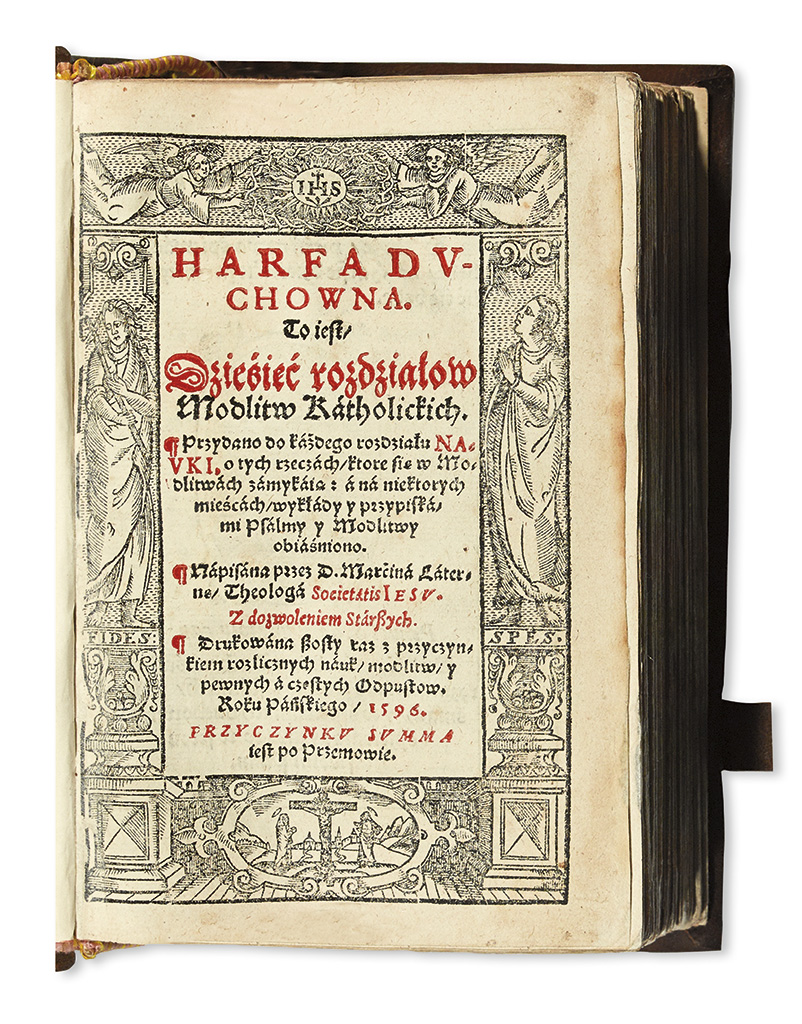 IHS
HARFA DV-
CHOWNA.
To iest/
Dzieśieć rozdziałow
Modlitw Kátholickich.
¶ Przydano do káżdego rozdziału NA-
VKI, o tych rzeczách/ktore się w Mo-
dlitwách zámykáią: á ná niektorych
mieścách/wykłády y przypiská-
mi Psálmy y Modlitwy
obiáśniono.
¶ Nápisána przez D. Márćiná Láter-
nę/ Theologá Societatis IESV.
Z dozwoleniem Stárßych.
¶ Drukowána ßosty raz z przyczyn-
kiem rozlicznych náuk/modlitw/y
pewnych á częstych Odpustow.
Roku Páńskiego / 1596.
PRZYCZYNKV SVMMA
iest po Przemowie.
FIDES:
SPES: